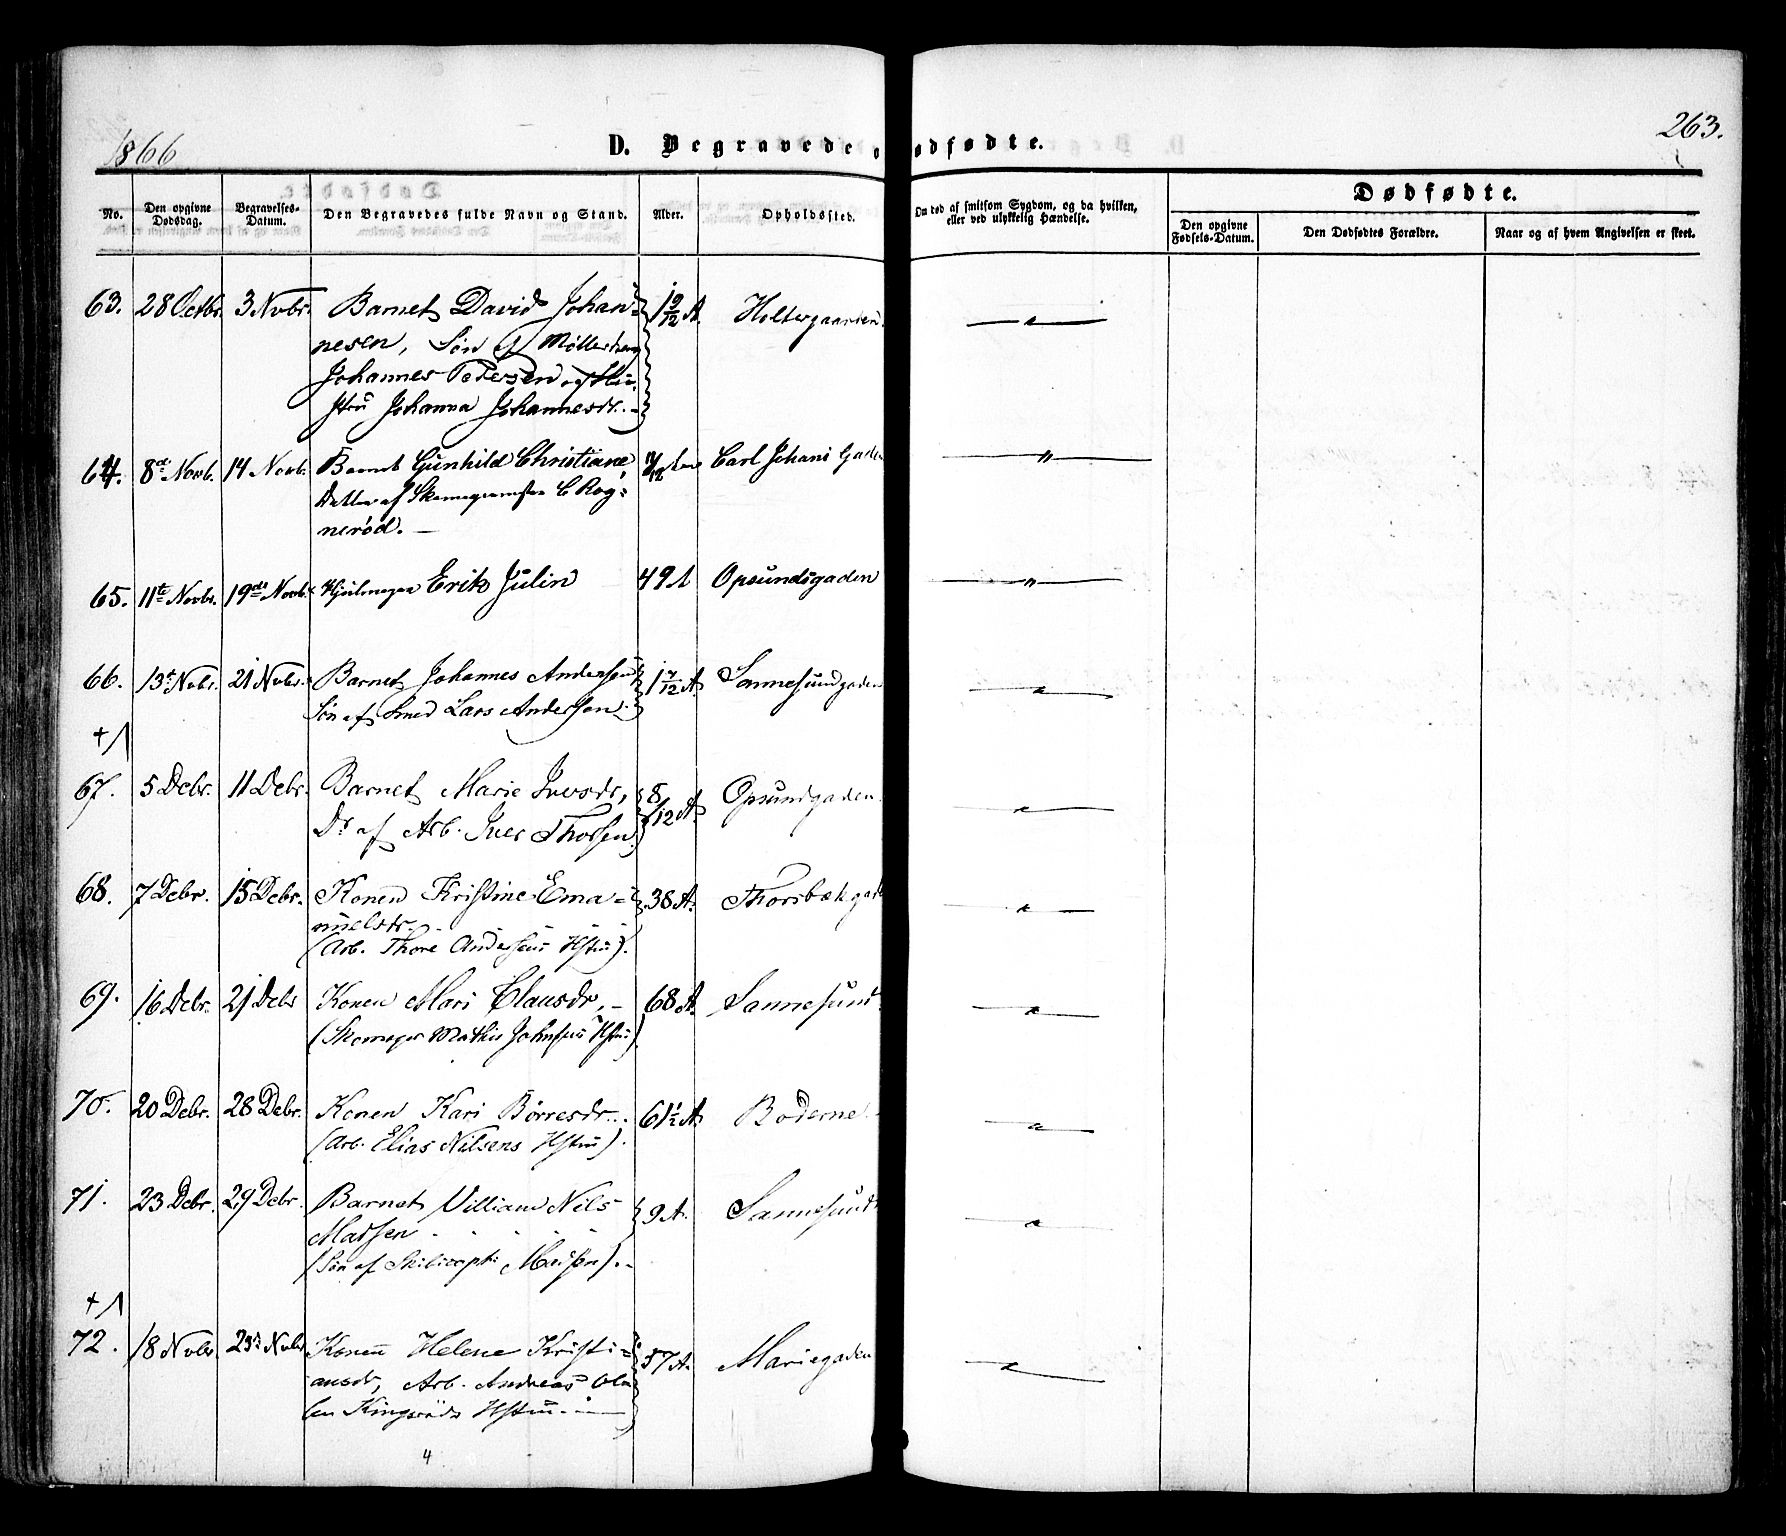 1866
D. Begravede o
ødfødte.
263.
No.
Den opgivne Dødsdag.
Begravelses-Datum.
Den Begravedes fulde Navn og Stand.
Alder.
Opholdssted.
Om død af smitsom Sygdom, og da hvilken,
eller ved ulykkelig Hændelse.
Dødfødte.
Den opgivne Fødsels-Datum.
Den Dødfødtes Forældre.
Naar og af hvem Angivelsen er skeet.
63. 28 Octbr. 3 Novbr. Barnet David Johan= 1 9/12 A. Holtergaarden.
nesen, Søn af
Johannes Pedersen og Hu=
stru Johanna Johannesdr.
64. 8de Novb. 14 Novb. Barnet Gunhild Christiane, Carl Johans Gaden
Datter af C Rog=
nerød.
65. 11te Novbr. 19de Novb. Erik Julin 49 A Opsundsgaden
66. 13de Nvbr. 21 Nvbr. Barnet Johannes Andersen 1 7/12 A. Sannesundgaden
Søn af Smed Lars Andersen.
+1
67. 5 Debr. 11 Debr. Barnet Marie Iversdr, 8/12 A. Opsundgaden.
Dr af Arb. Iver Thorsen.
68. 7 Debr. 15 Debr. Konen Kristine Ema= 38 A. Thorsbækgad
nuelsdr.
(Arb. Thore Andersens Hstru).
69. 16 Debr. 21 Debr Konen Mari Clausdr, 68 A. Sannesund.
(Skomager Mathis Johnsens Hstru)
70. 20 Debr. 28 Debr. Konen Kari Börresdr. 61 1/2 A. Boderne.
(Arb. Elias Nilsens Hstru).
71. 23 Debr. 29 Debr. Barnet Villiam Nils 9 A. Sannesund
Madsen
(Søn af Skibscapt. Madsen).
+1
72. 18 Nvbr. Nvbr Konen Helene Kristi= 57 A. Mariegaden
ansdr, Arb. Andreas Ola
sen Hstru.
4